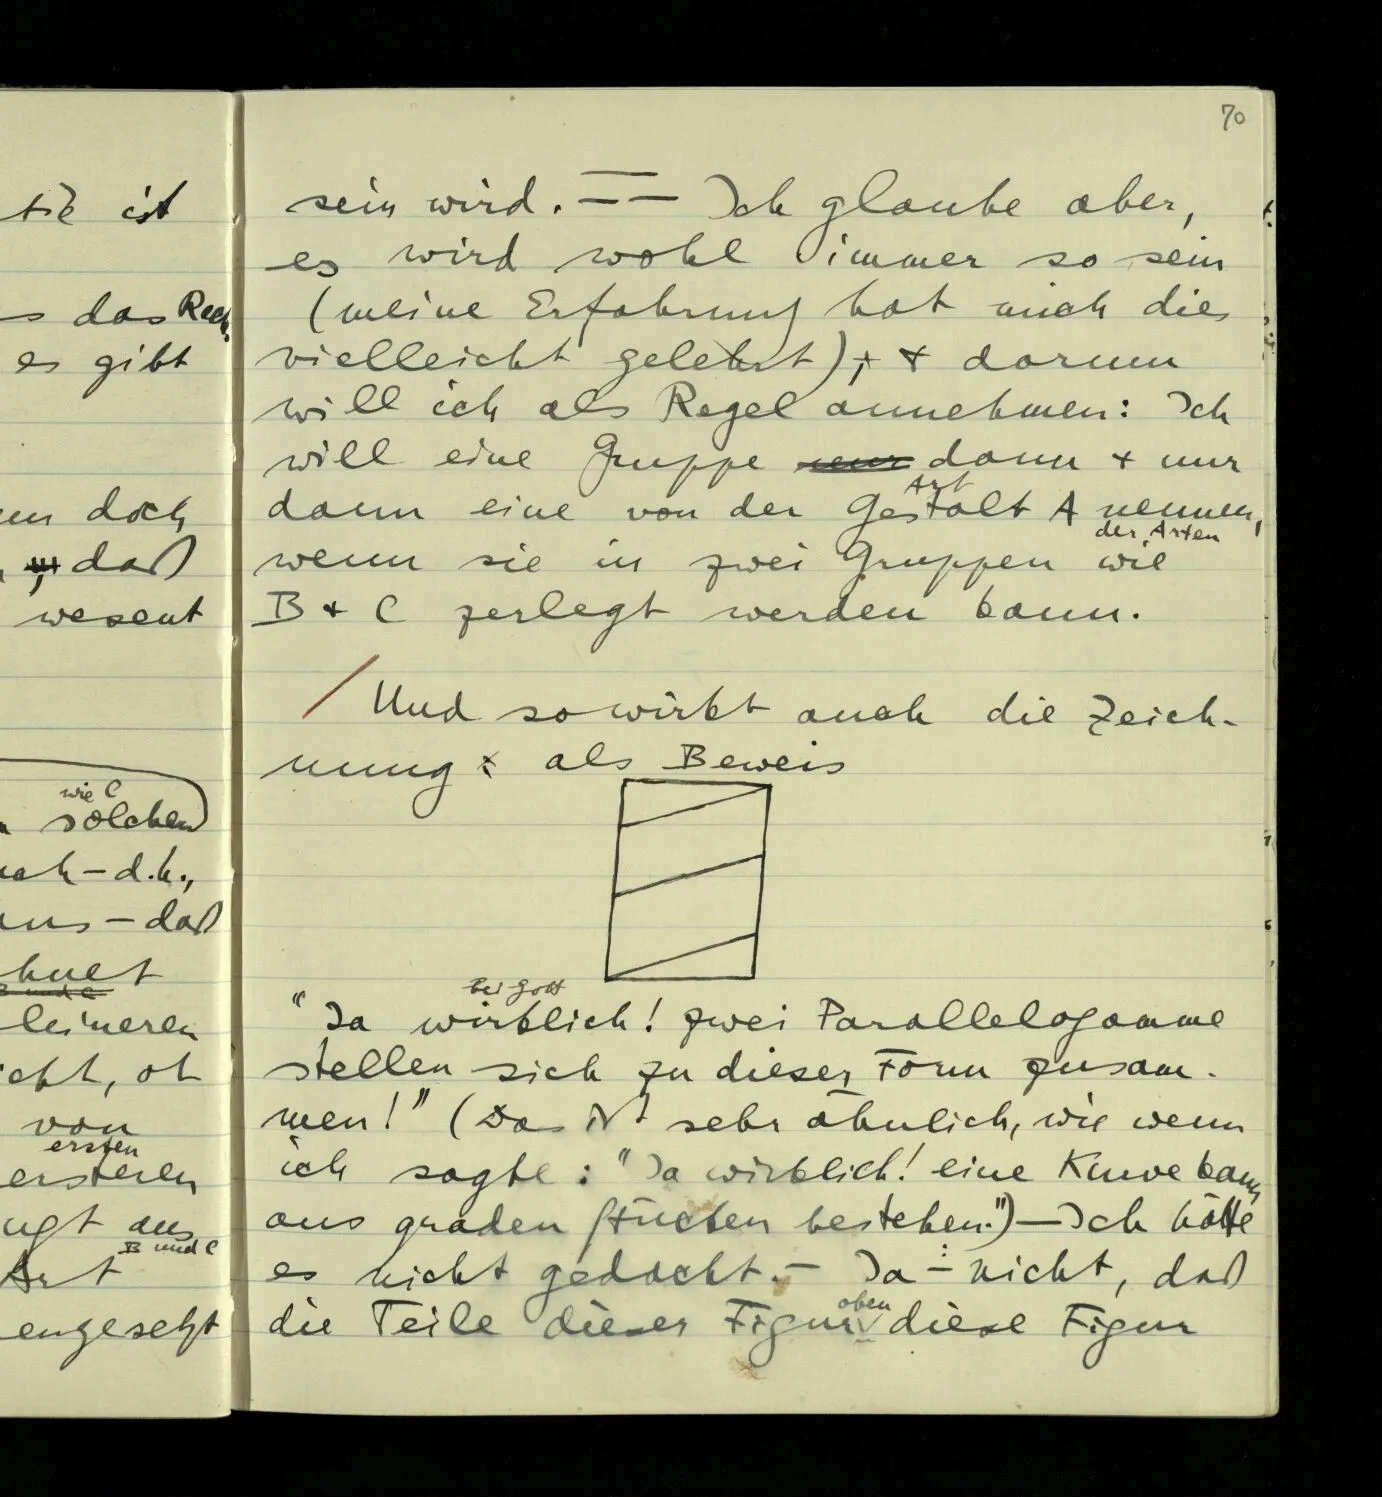 70
tie ist
s das Rech
es gibt
doch
, daß
wesent
wie C
solchen
– d.h.,
– daß
B und C
leineren
, ob
von
ersten
ersteren
aus
B und C
Art
engesetzt
sein wird. — — Ich glaube aber,
es wird wohl immer so sein
(meine Erfahrung hat mich dies
vielleicht gelehrt); + darum
will ich als Regel annehmen: Ich
will eine Gruppe nur dann + nur
Art
dann eine von der Gestalt A nennen,
der Arten
wenn sie in zwei Gruppen wie
B + C zerlegt werden kann.
/ Und so wirkt auch die Zeich-
nung als Beweis
bei Gott
"Ja wirklich! zwei Parallelogamme
stellen sich zu dieser Form zusam-
men!" (Das ist sehr ähnlich, wie wenn
ich sagte: "Ja wirklich! eine Kurve kann
aus graden Stücken bestehen.") — Ich hätte
es nicht gedacht. – Ja – nicht, daß
oben
die Teile dieser Figur diese Figur